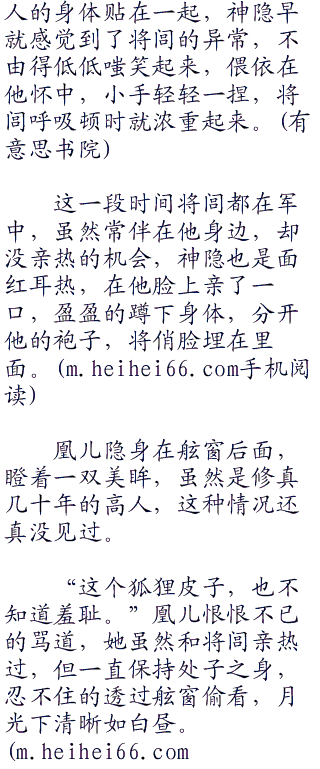 人的身体贴在一起，神隐早
就感觉到了将闾的异常，不
由得低低嗤笑起来，偎依在
他怀中，小手轻轻一捏，将
闾呼吸顿时就浓重起来。(有
意思书院)
这一段时间将闾都在军
中，虽然常伴在他身边，却
没亲热的机会，神隐也是面
红耳热，在他脸上亲了一
口，盈盈的蹲下身体，分开
他的袍子，将俏脸埋在里
面。(m.heihei66.com手机阅
读)
凰儿隐身在舷窗后面，
瞪着一双美眸，虽然是修真
几十年的高人，这种情况还
真没见过。
“这个狐狸皮子，也不
知道羞耻。”凰儿恨恨不已
的骂道，她虽然和将闾亲热
过，但一直保持处子之身，
忍不住的透过舷窗偷看，月
光下清晰如白昼。
(m.heihei66.com